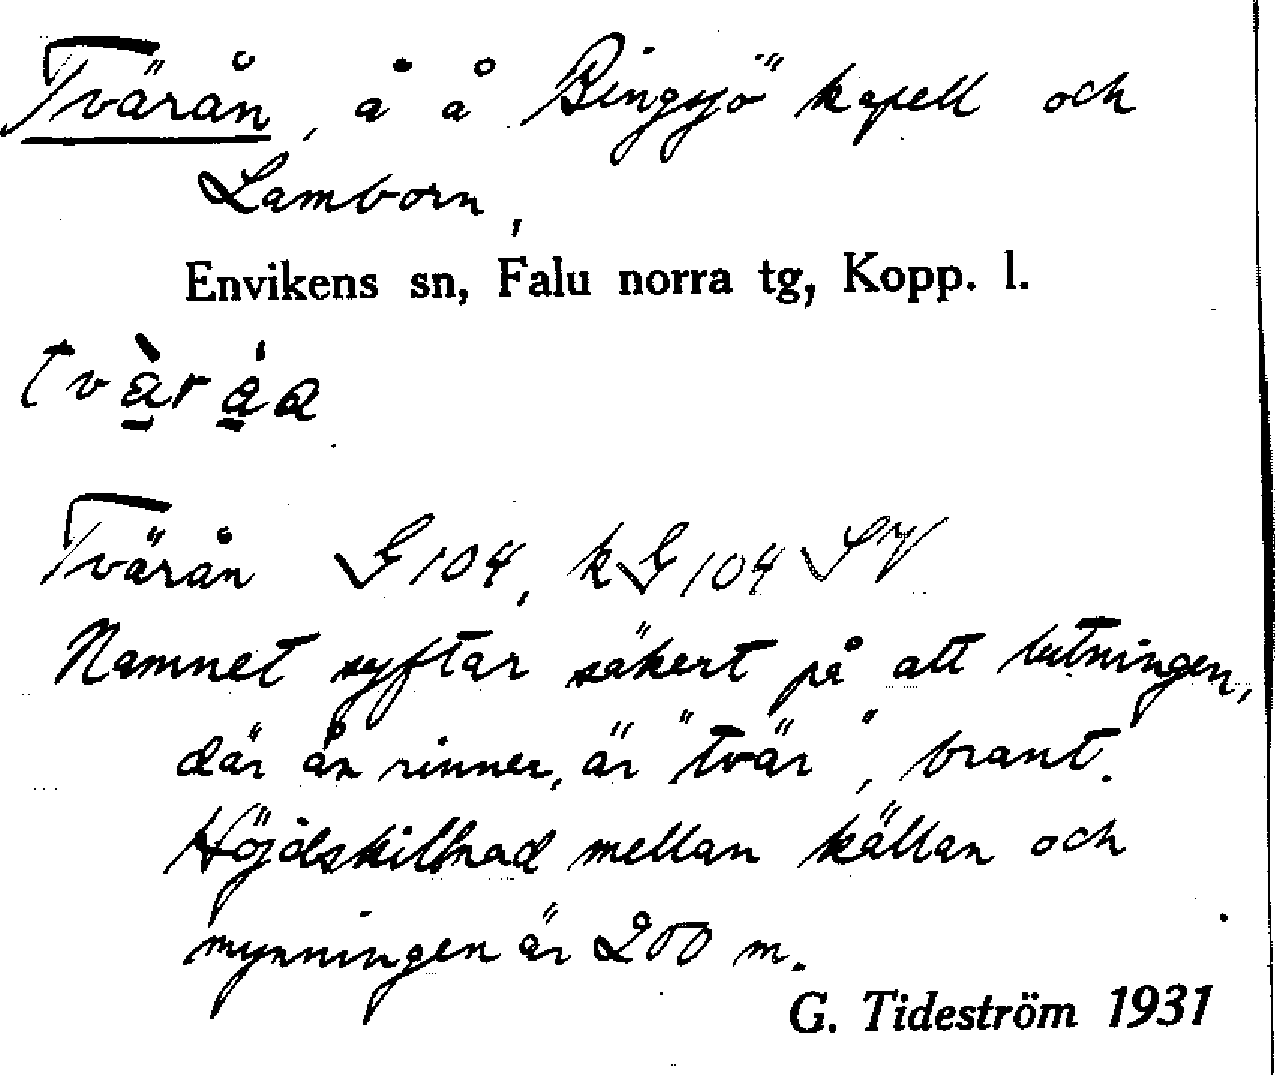 Tvärån, å å Bingsjö kapell och
Lamborn,
Envikens sn, Falu norra tg, Kopp. l.
tvà̱rá̱a
Tvärån G104, kG104 SV
Namnet syftar säkert på att lutningen,
där ån rinner, är "tvär", brant.
Höjdskillnad mellan källan och
mynningen är 200 m.
G. Tideström 1931